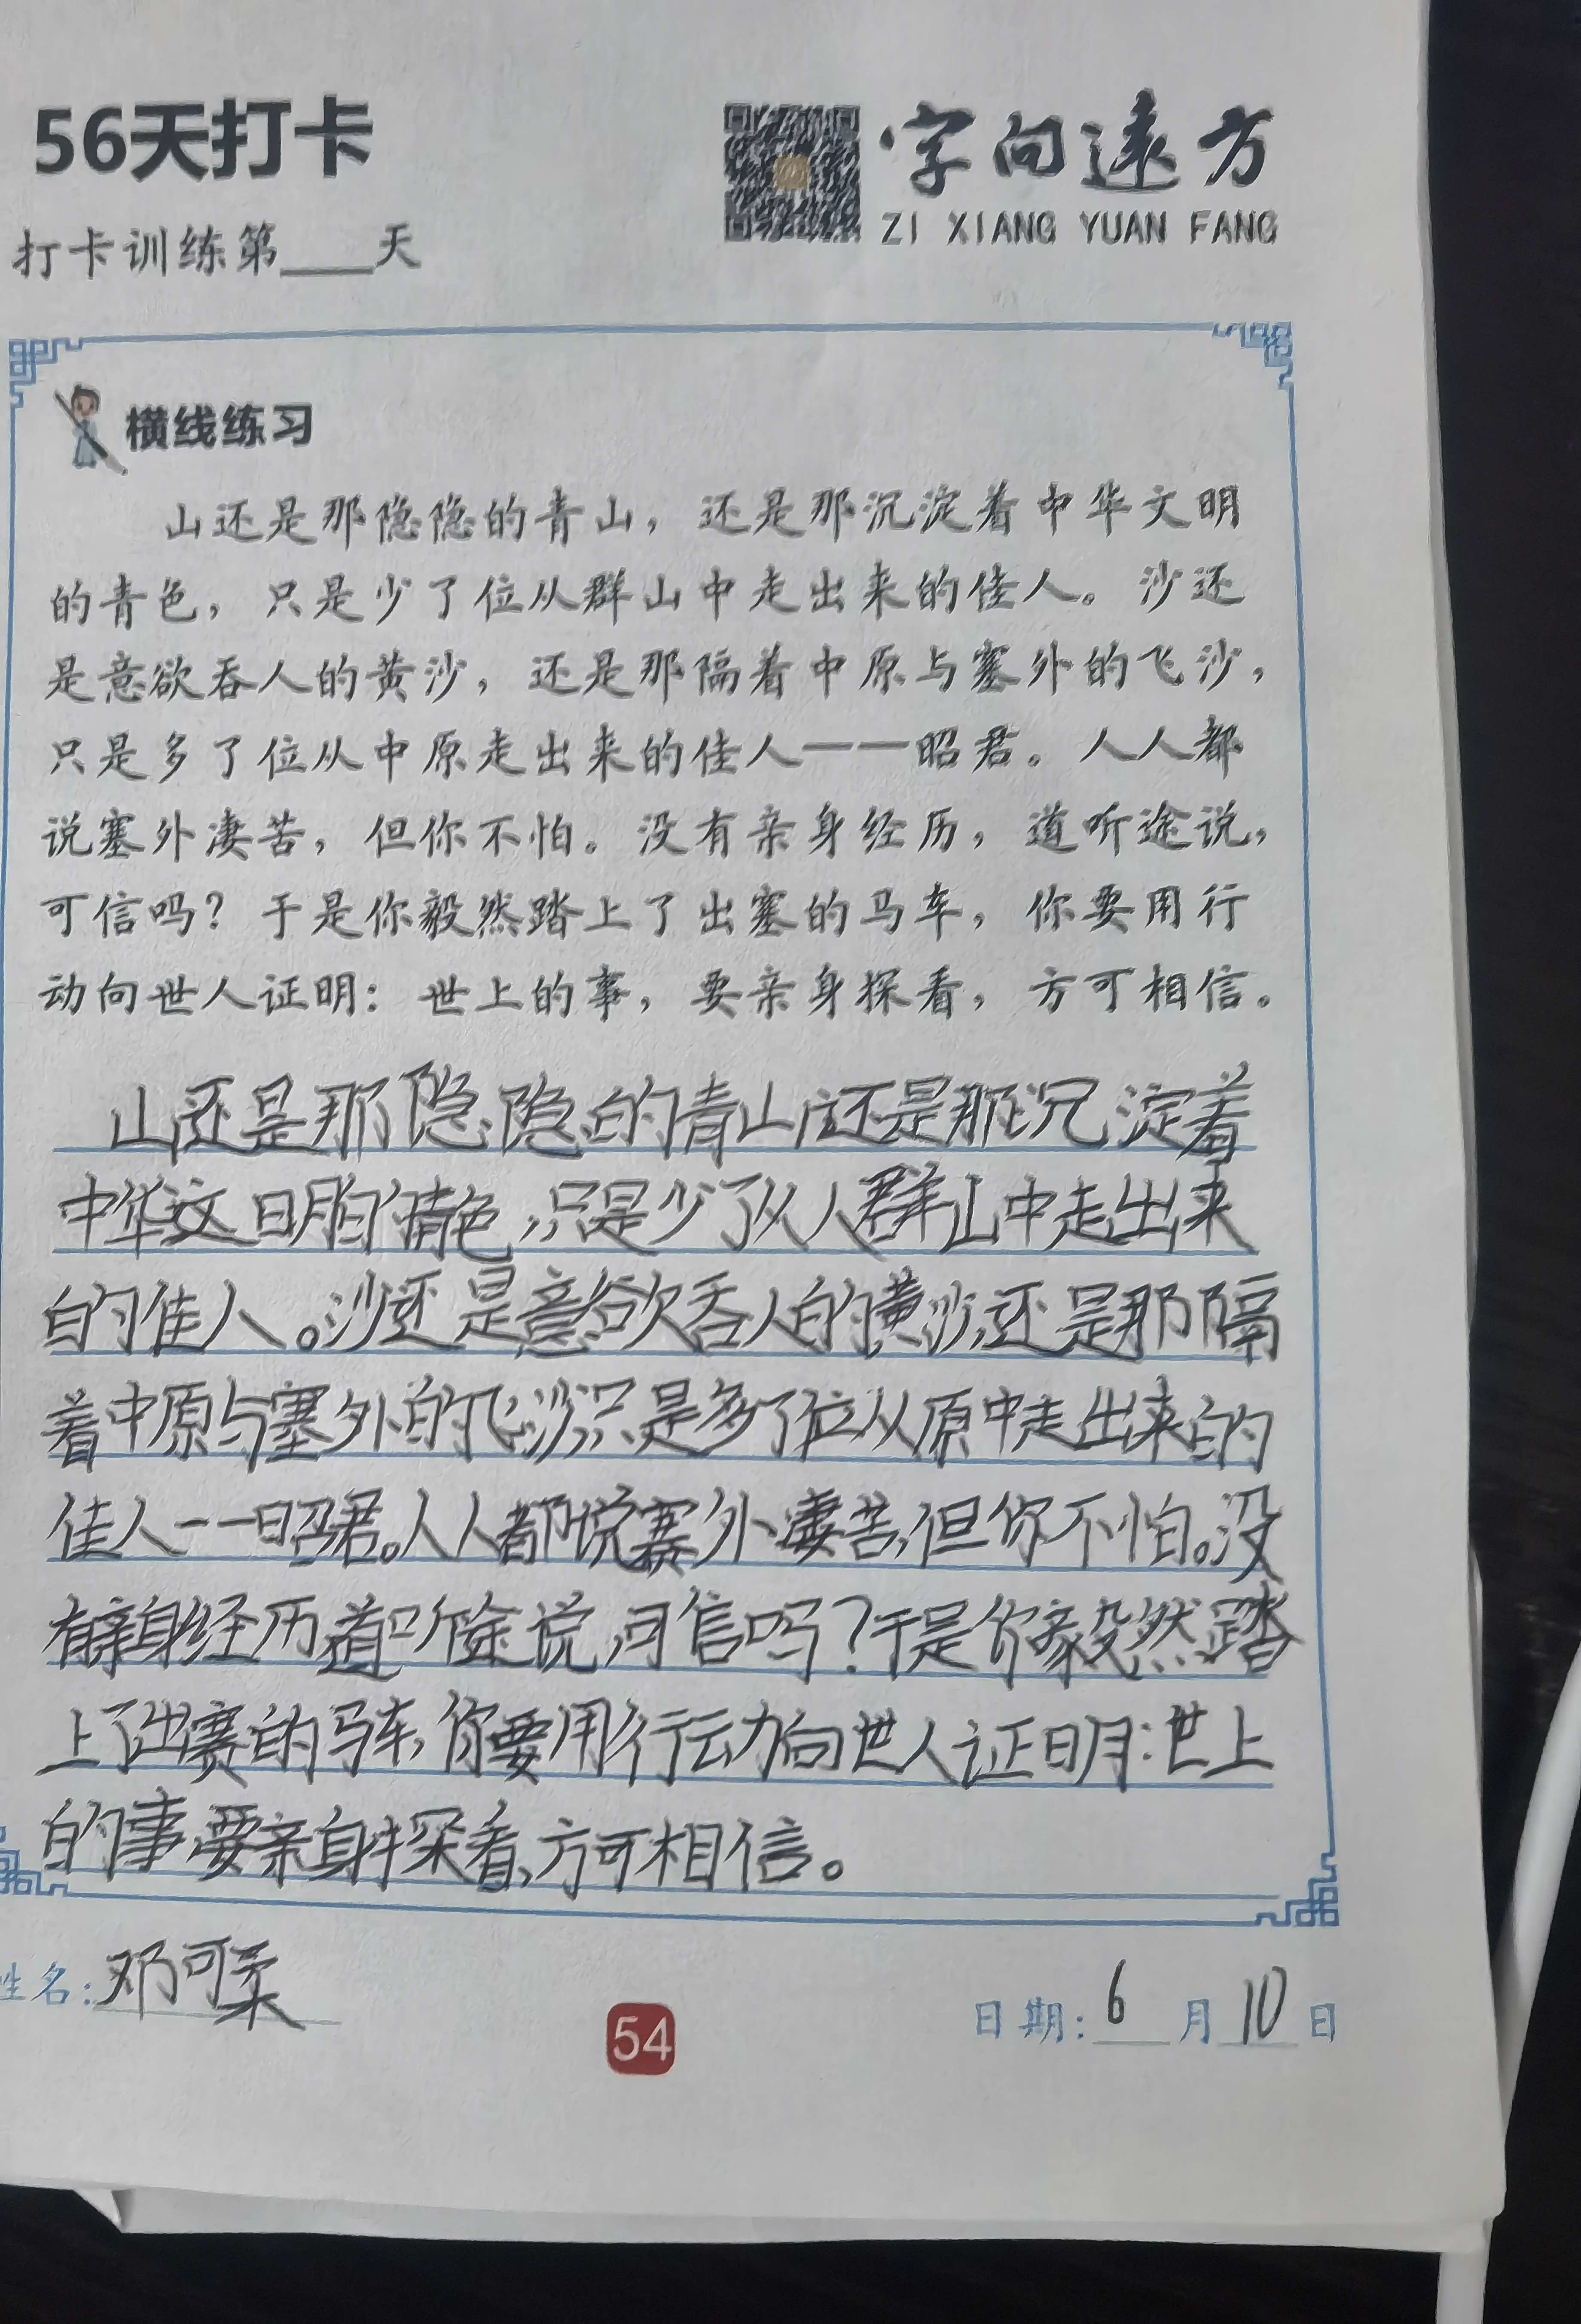 56天打卡
字向远方
ZI XIANG YUAN FANG
打卡训练第____天
横线练习
山还是那隐隐的青山，还是那沉淀着中华文明
的青色，只是少了位从群山中走出来的佳人。沙还
是意欲吞人的黄沙，还是那隔着中原与塞外的飞沙，
只是多了位从中原走出来的佳人——昭君。人人都
说塞外凄苦，但你不怕。没有亲身经历，道听途说，
可信吗？于是你毅然踏上了出塞的马车，你要用行
动向世人证明：世上的事，要亲身探看，方可相信。
山还是那隐隐的青山还是那沉淀着
中华文明的情色，只是少了从人群山中走出来
的佳人。沙还是意欲吞人的黄沙,还是那隔
着中原与塞外的飞沙只是多了位从原中走出来的
佳人——昭君。人人都说赛外凄苦,但你不怕。没
有亲身经历道听途说,可信吗?于是你毅然踏
上了出赛的马车,你要用行动向世人证明:世上
的事,要亲身探看,方可相信。
姓名:邓可柔
54
日期:6月10日